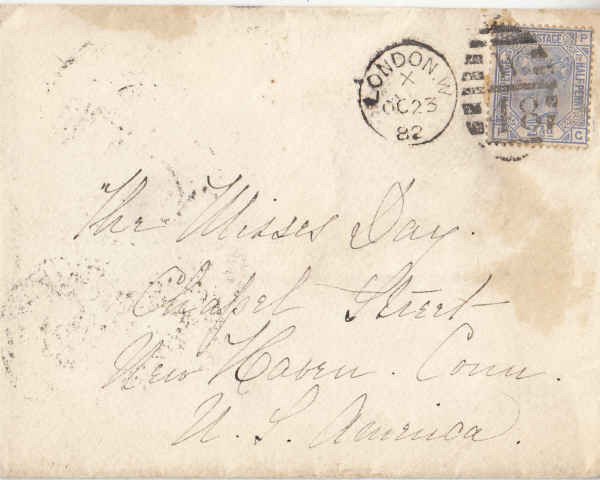 LONDON.W
X
OC 23
82
POSTAGE
HALF PENNY
P
G
The Misses Day.
Chapel Street
New Haven. Conn.
U. S. America.